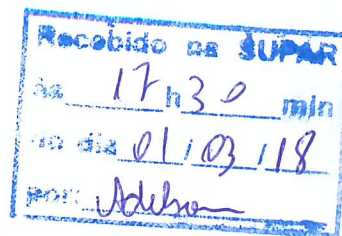 Recebido na SUPAR
às 17 h 30 min
no dia 01 / 03 / 18
por: Adelson